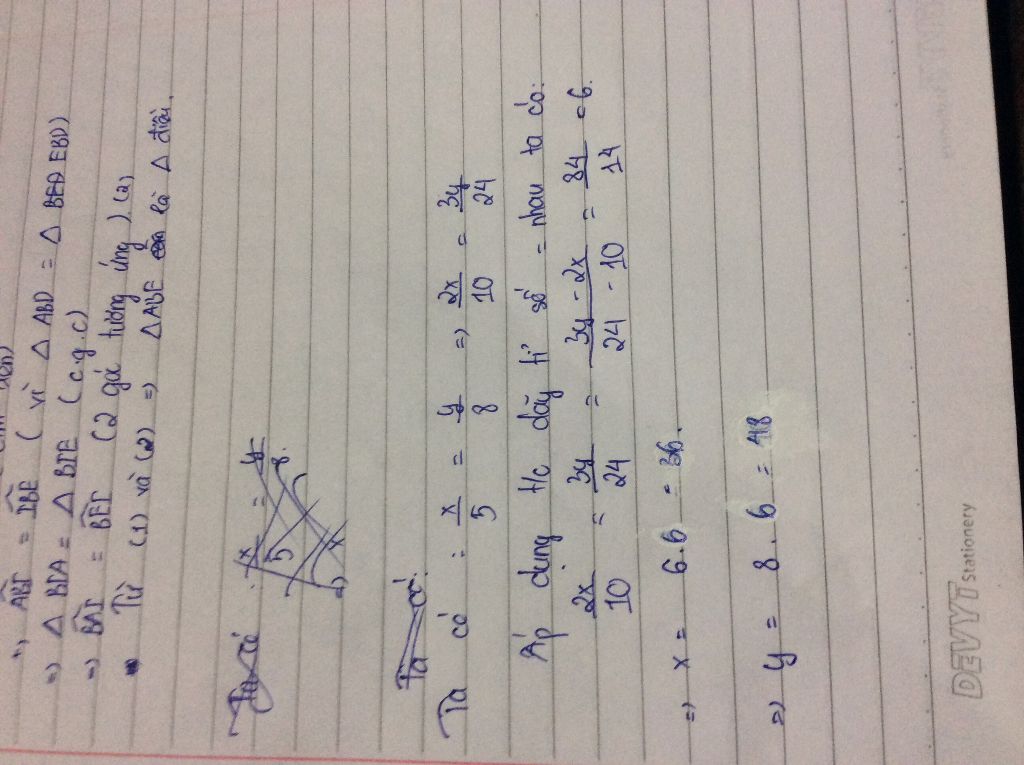 => ABI = DBE ( vì Δ ABD = Δ BED EBD)
=> Δ BIA = Δ BIE ( c.g.c)
=> BAI = BEI (2 gó tương ứng ) (2)
Từ (1) và (2) => Δ ABE là Δ đều.
Ta có : x/5 = y/8
Ta có:
Ta có : x/5 = y/8 => 2x/10 = 3y/24
Áp dụng t/c dãy tỉ số = nhau ta có:
2x/10 = 3y/24 = 3y - 2x / 24 - 10 = 84/14 = 6.
=> x = 6.6 = 36.
=> y = 8 . 6 = 48
DEVYT Stationery